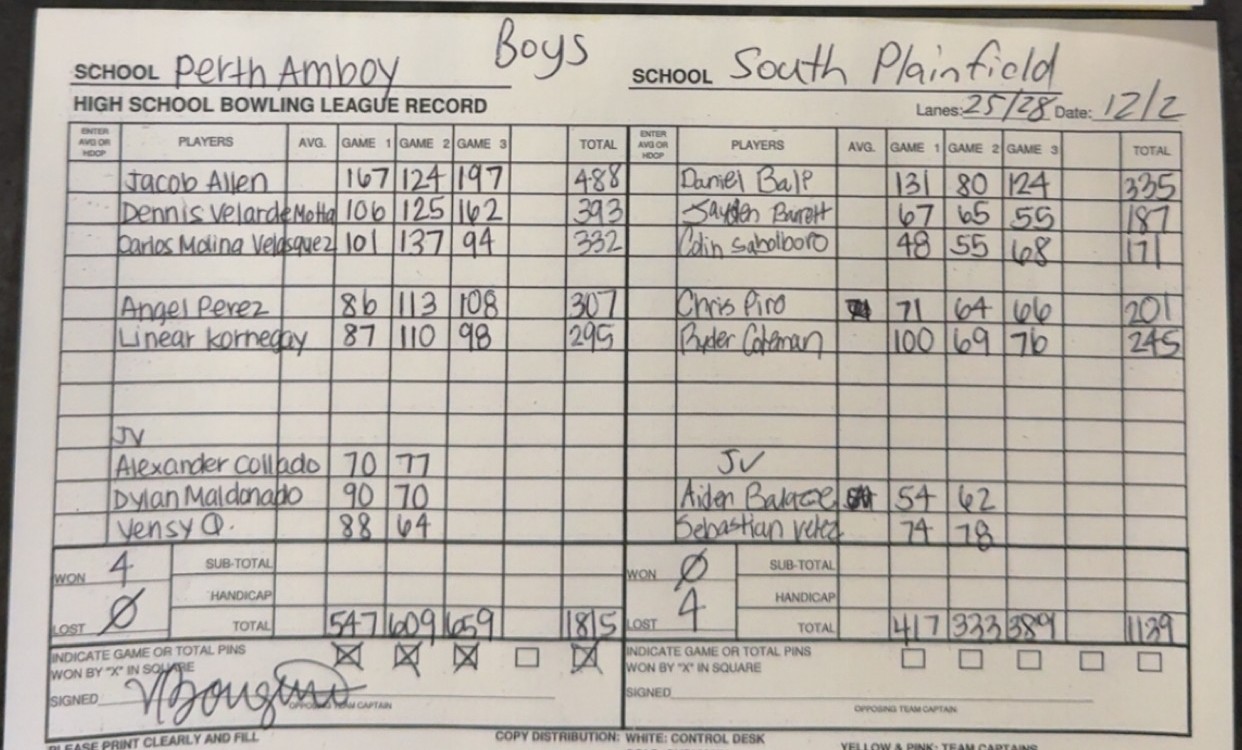 Boys
SCHOOL Perth Amboy SCHOOL South Plainfield
HIGH SCHOOL BOWLING LEAGUE RECORD Lanes: 25/28 Date: 12/2
ENTER AVG OR HDCP PLAYERS AVG. GAME 1 GAME 2 GAME 3 TOTAL ENTER AVG OR HDCP PLAYERS AVG. GAME 1 GAME 2 GAME 3 TOTAL
Jacob Allen 167 124 197 488 Daniel 131 80 124 335
Dennis Velarde Motta 106 125 162 393 Jayden 67 65 55 187
Carlos Molina Velasquez 101 137 94 332 Colin 48 55 68 171
Angel Perez 86 113 108 307 Chris Piro 71 64 66 201
Linear Kornegay 87 110 98 295 Ryder Coleman 100 69 76 245
JV
Alexander Collado 70 77 JV
Dylan Maldonado 90 70 Aiden 54 62
Yensy Q. 88 64 Sebastian Velez 74 78
WON 4 SUB-TOTAL WON Ø SUB-TOTAL
HANDICAP HANDICAP
LOST Ø TOTAL 547 609 659 1815 LOST 4 TOTAL 417 333 389 1139
INDICATE GAME OR TOTAL PINS INDICATE GAME OR TOTAL PINS
WON BY "X" IN SQUARE WON BY "X" IN SQUARE
SIGNED SIGNED
OPPOSING TEAM CAPTAIN OPPOSING TEAM CAPTAIN
PLEASE PRINT CLEARLY AND FILL COPY DISTRIBUTION: WHITE: CONTROL DESK
YELLOW & PINK: TEAM CAPTAINS